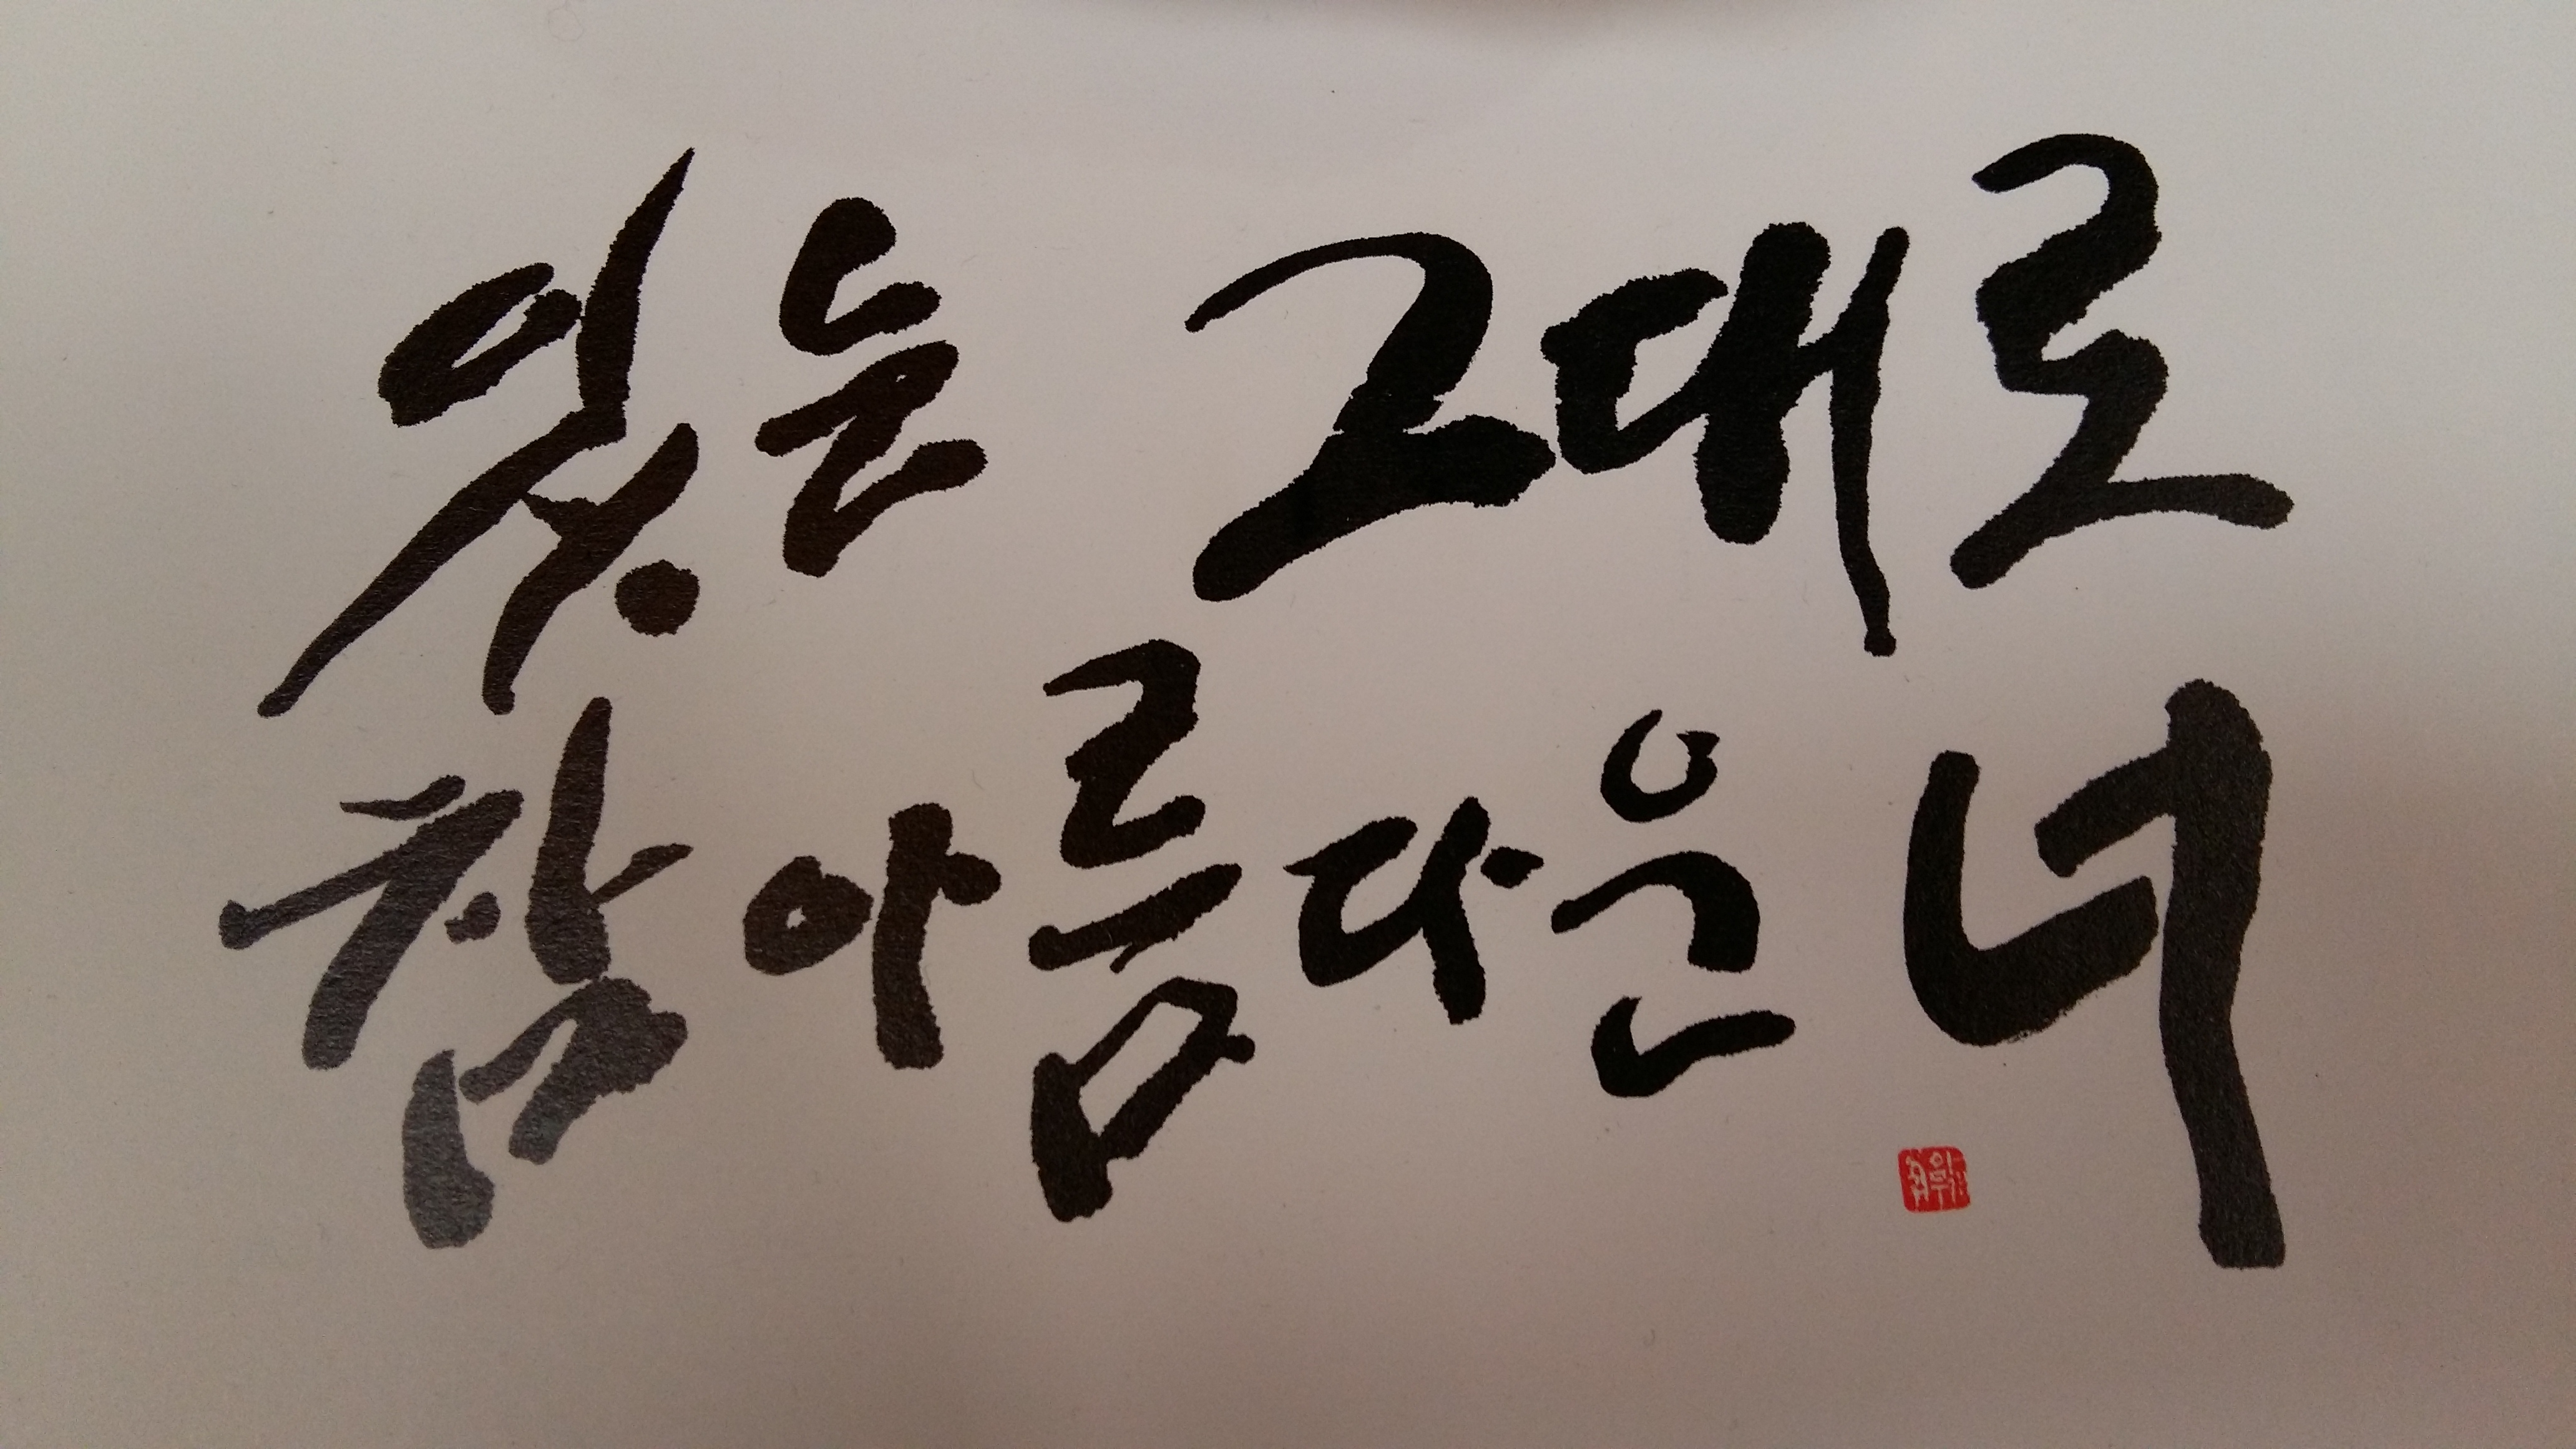 있는 그대로
참 아름다운 너